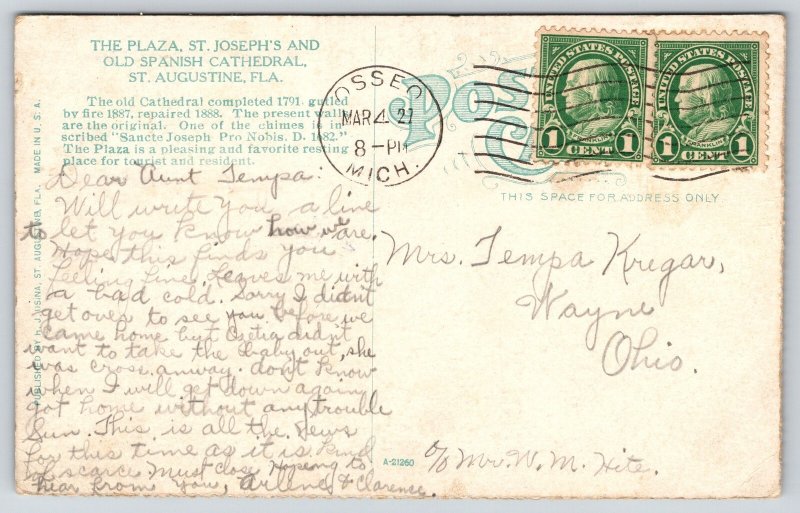 THE PLAZA, ST. JOSEPH'S AND
OLD SPANISH CATHEDRAL,
ST. AUGUSTINE, FLA.
The old Cathedral completed 1791, gutted
by fire 1887, repaired 1888. The present walls
are the original. One of the chimes is in-
scribed "Sancte Joseph Pro Nobis. D. 1682."
The Plaza is a pleasing and favorite resting
place for tourist and resident.
Dear Aunt Tempa:
Will write you a line
to let you know how we are.
Hope this finds you
feeling fine. Leaves me with
a bad cold. Sorry I didn't
get over to see you before we
came home but didn't
want to take the baby out, she
was cross anway. don't know
when I will get down again
got home without any trouble
Sun. This is all the News
for this time as it is kind
of scarce. Must close Hopeing to
hear from you, Arlene & Clarence.
PUBLISHED BY H. J. USINA, ST. AUGUSTINE, FLA. MADE IN U. S. A.
OSSEO
MAR 4 27
8-PM
MICH.
Post
UNITED STATES POSTAGE
FRANKLIN
1 CENT 1
UNITED STATES POSTAGE
FRANKLIN
1 CENT 1
THIS SPACE FOR ADDRESS ONLY.
Mrs. Tempa Kregar,
Wayne
Ohio.
A-21260
c/o Mr. W. M. Hite.